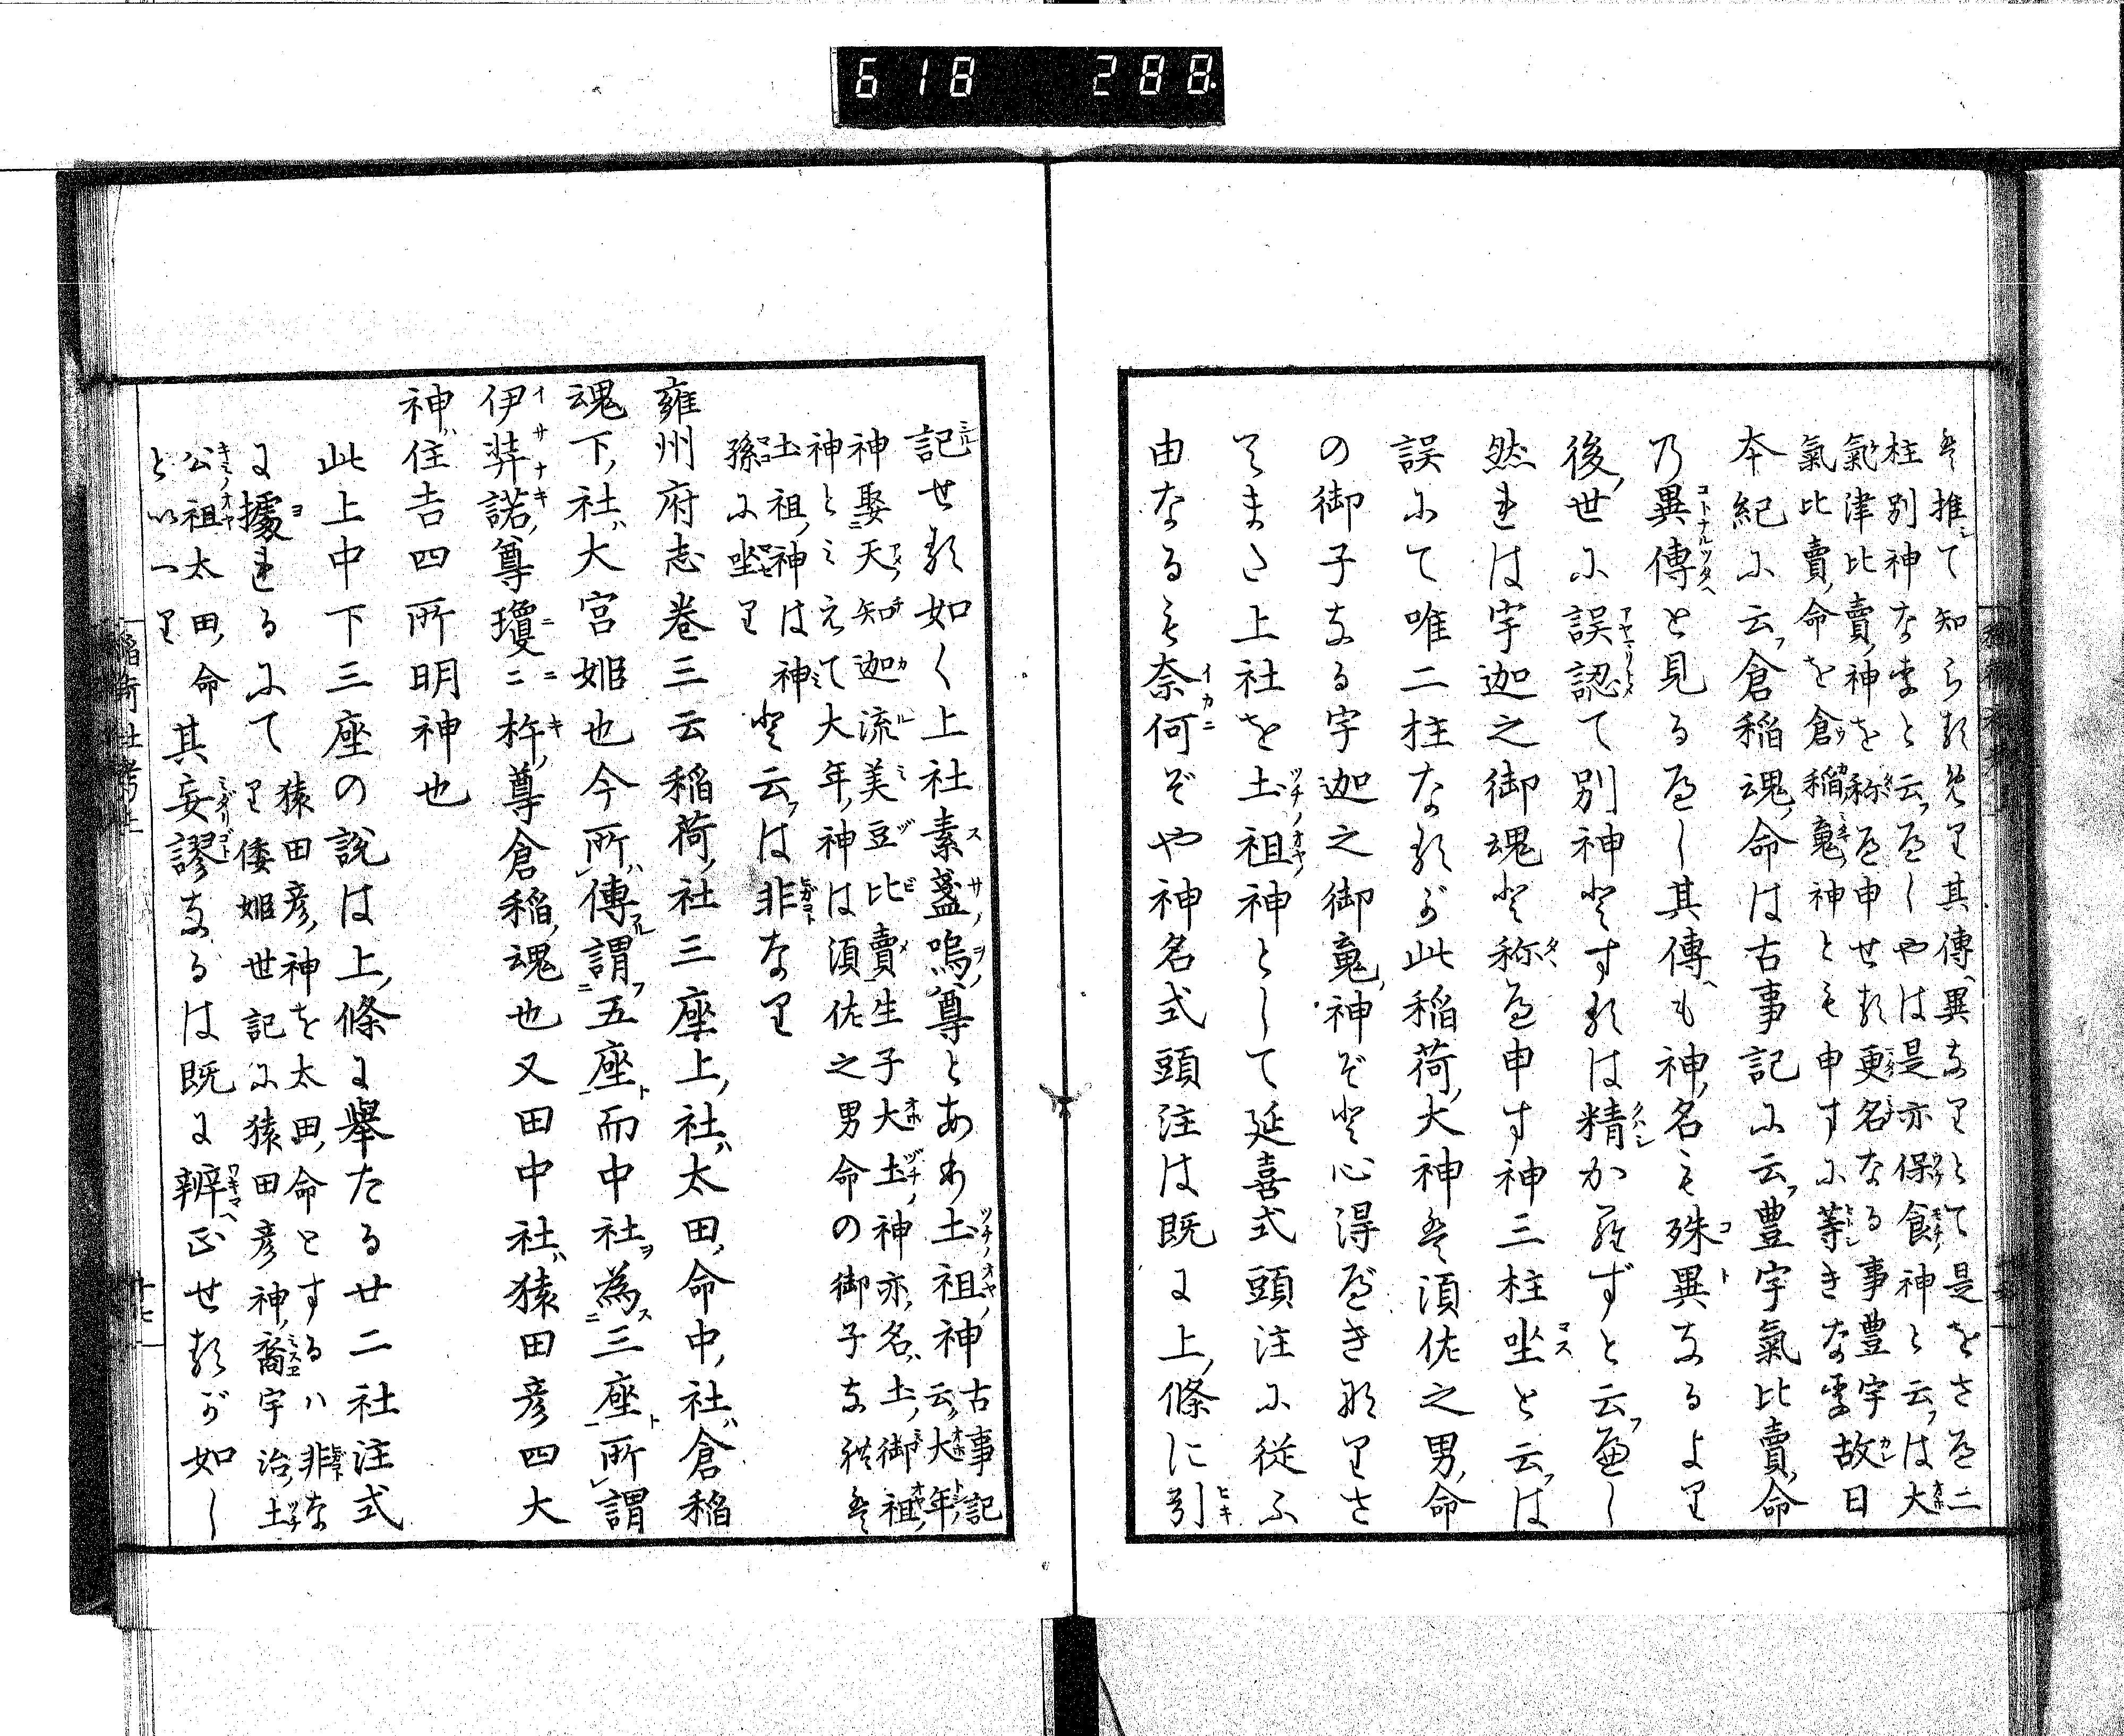 618 288
を推て知られたり其傳異なりとて是をさへ二
柱別神なりと云へしやは是亦保食神と云は大
氣津比賣神を称へ申せる更名なる事豊宇
氣比賣命を倉稲魂神とも申すに等きな故曰
本紀に云倉稲魂命は古事記に云豊宇氣比賣命
乃異傳と見るへし其傳も神名も殊異なるより
後世に誤認て別神とするは精からずと云へし
然れは宇迦之御魂と称へ申す神三柱坐と云は
誤にて唯二柱なるが此稲荷大神は須佐之男命
の御子なる宇迦之御魂神ぞと心得へきなりさ
てまた上社を土祖神として延喜式頭注に従ふ
由なるも奈何ぞや神名式頭注は既に上條に引
記せる如く上社素盞嗚尊とあり土祖神云古事記
神娶天知迦流美豆比賣生子大土神亦名土御祖
神とみえて大年神は須佐之男命の御子なれは
土祖神は神
孫に坐り
と云は非なり
雍州府志巻三云稲荷社三座上社太田命中社倉稲
魂下社大宮姫也今所傳謂五座而中社為三座所謂
伊弉諾尊瓊々杵尊倉稲魂也又田中社猿田彦四大
神住吉四所明神也
此上中下三座の說は上條に舉たる廿二社注式
に據れるにて
猿田彦神を太田命とするハ非な
り倭姫世記に猿田彦神裔宇治土
公祖太田命
といへり
其妄謬なるは既に辨正せるが如し
稲荷社考上
十七